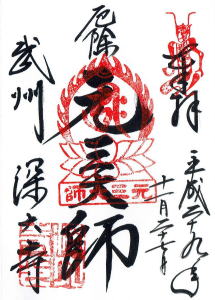 奉拝
平成二十九年
十一月二十七日
厄除
元三大師
武州
深大寺